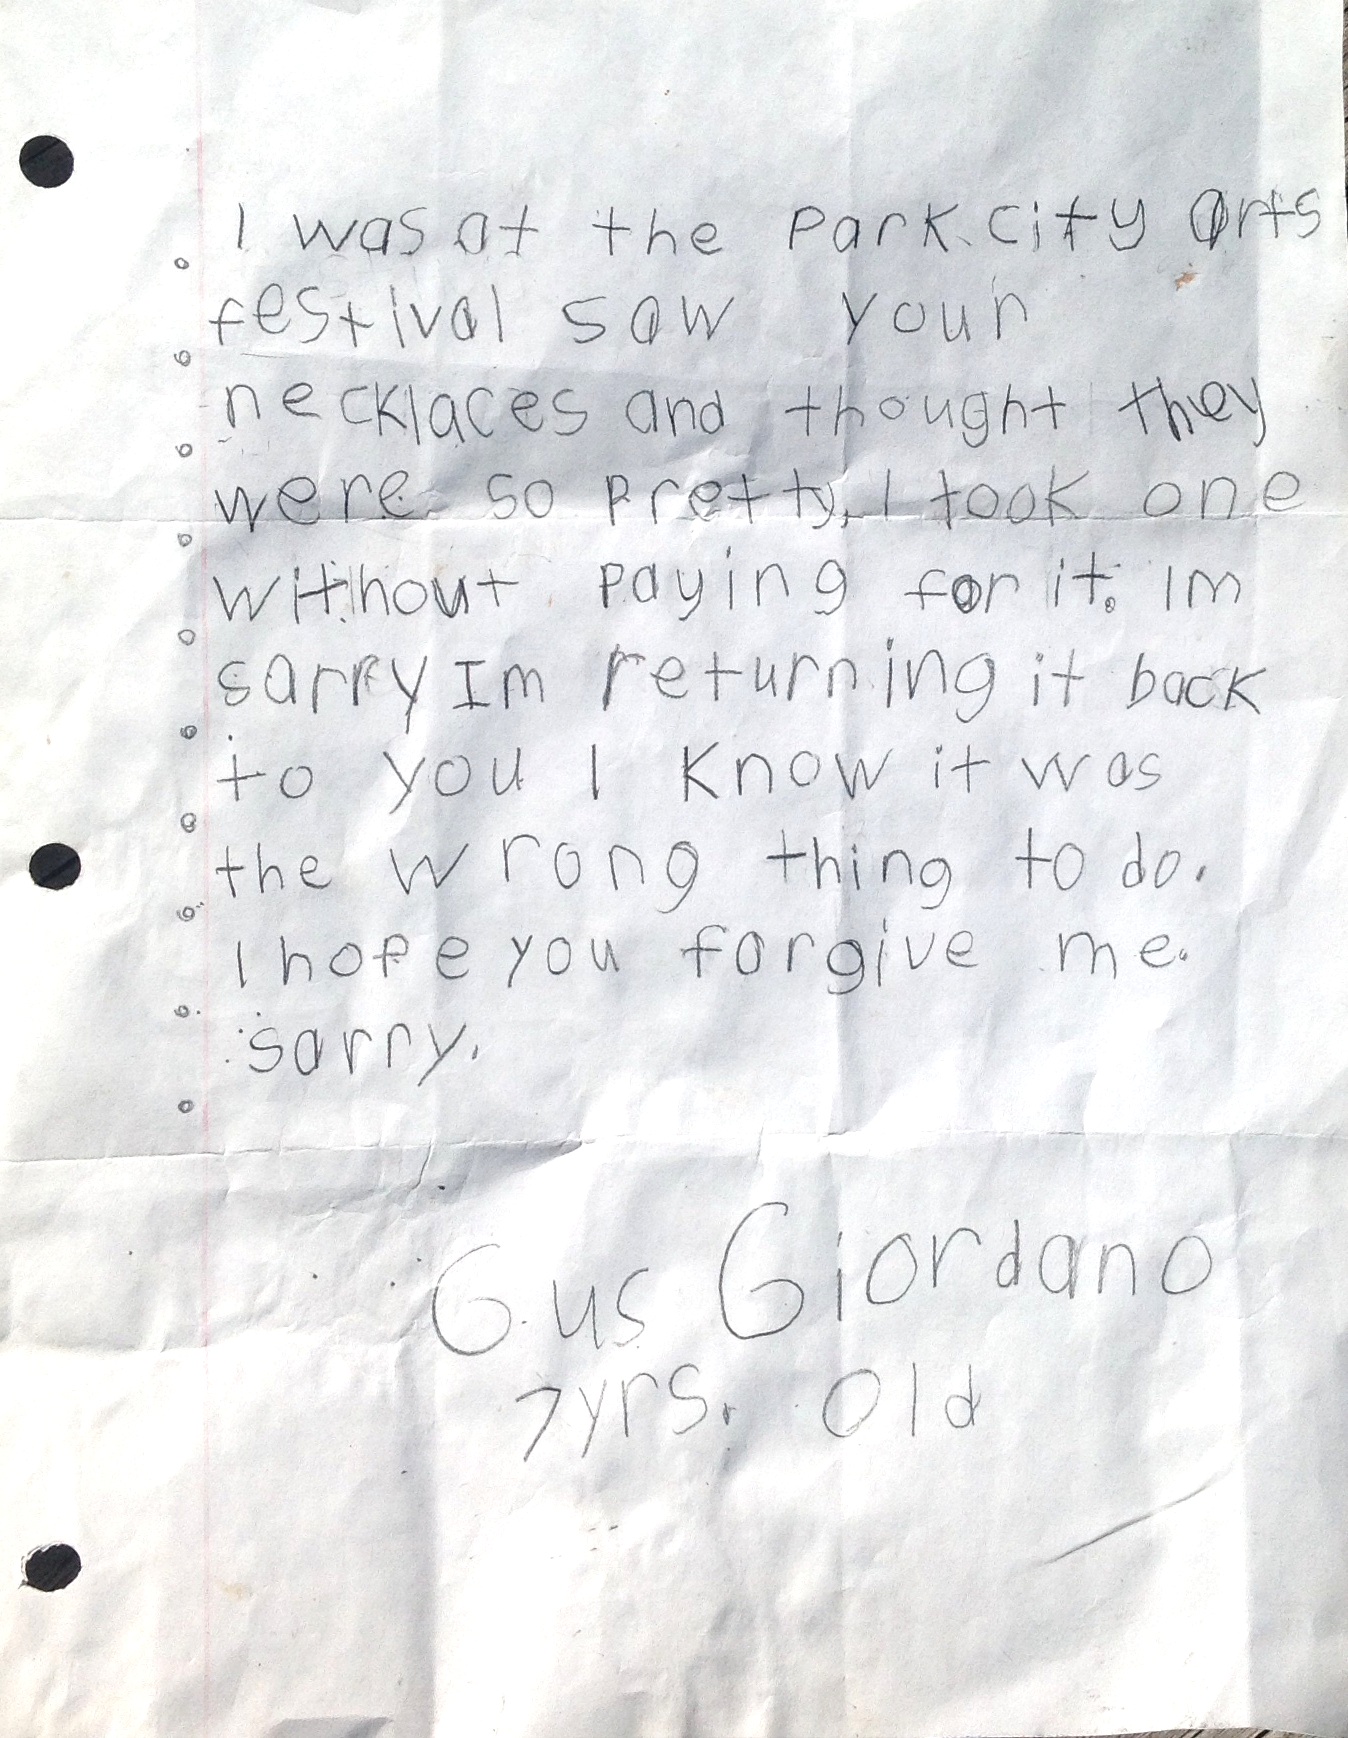 I was at the Park City Arts
festival saw your
necklaces and thought they
were so pretty, I took one
without paying for it. Im
sarry Im returning it back
to you I know it was
the wrong thing to do.
I hope you forgive me.
sarry.
Gus Giordano
7yrs. old